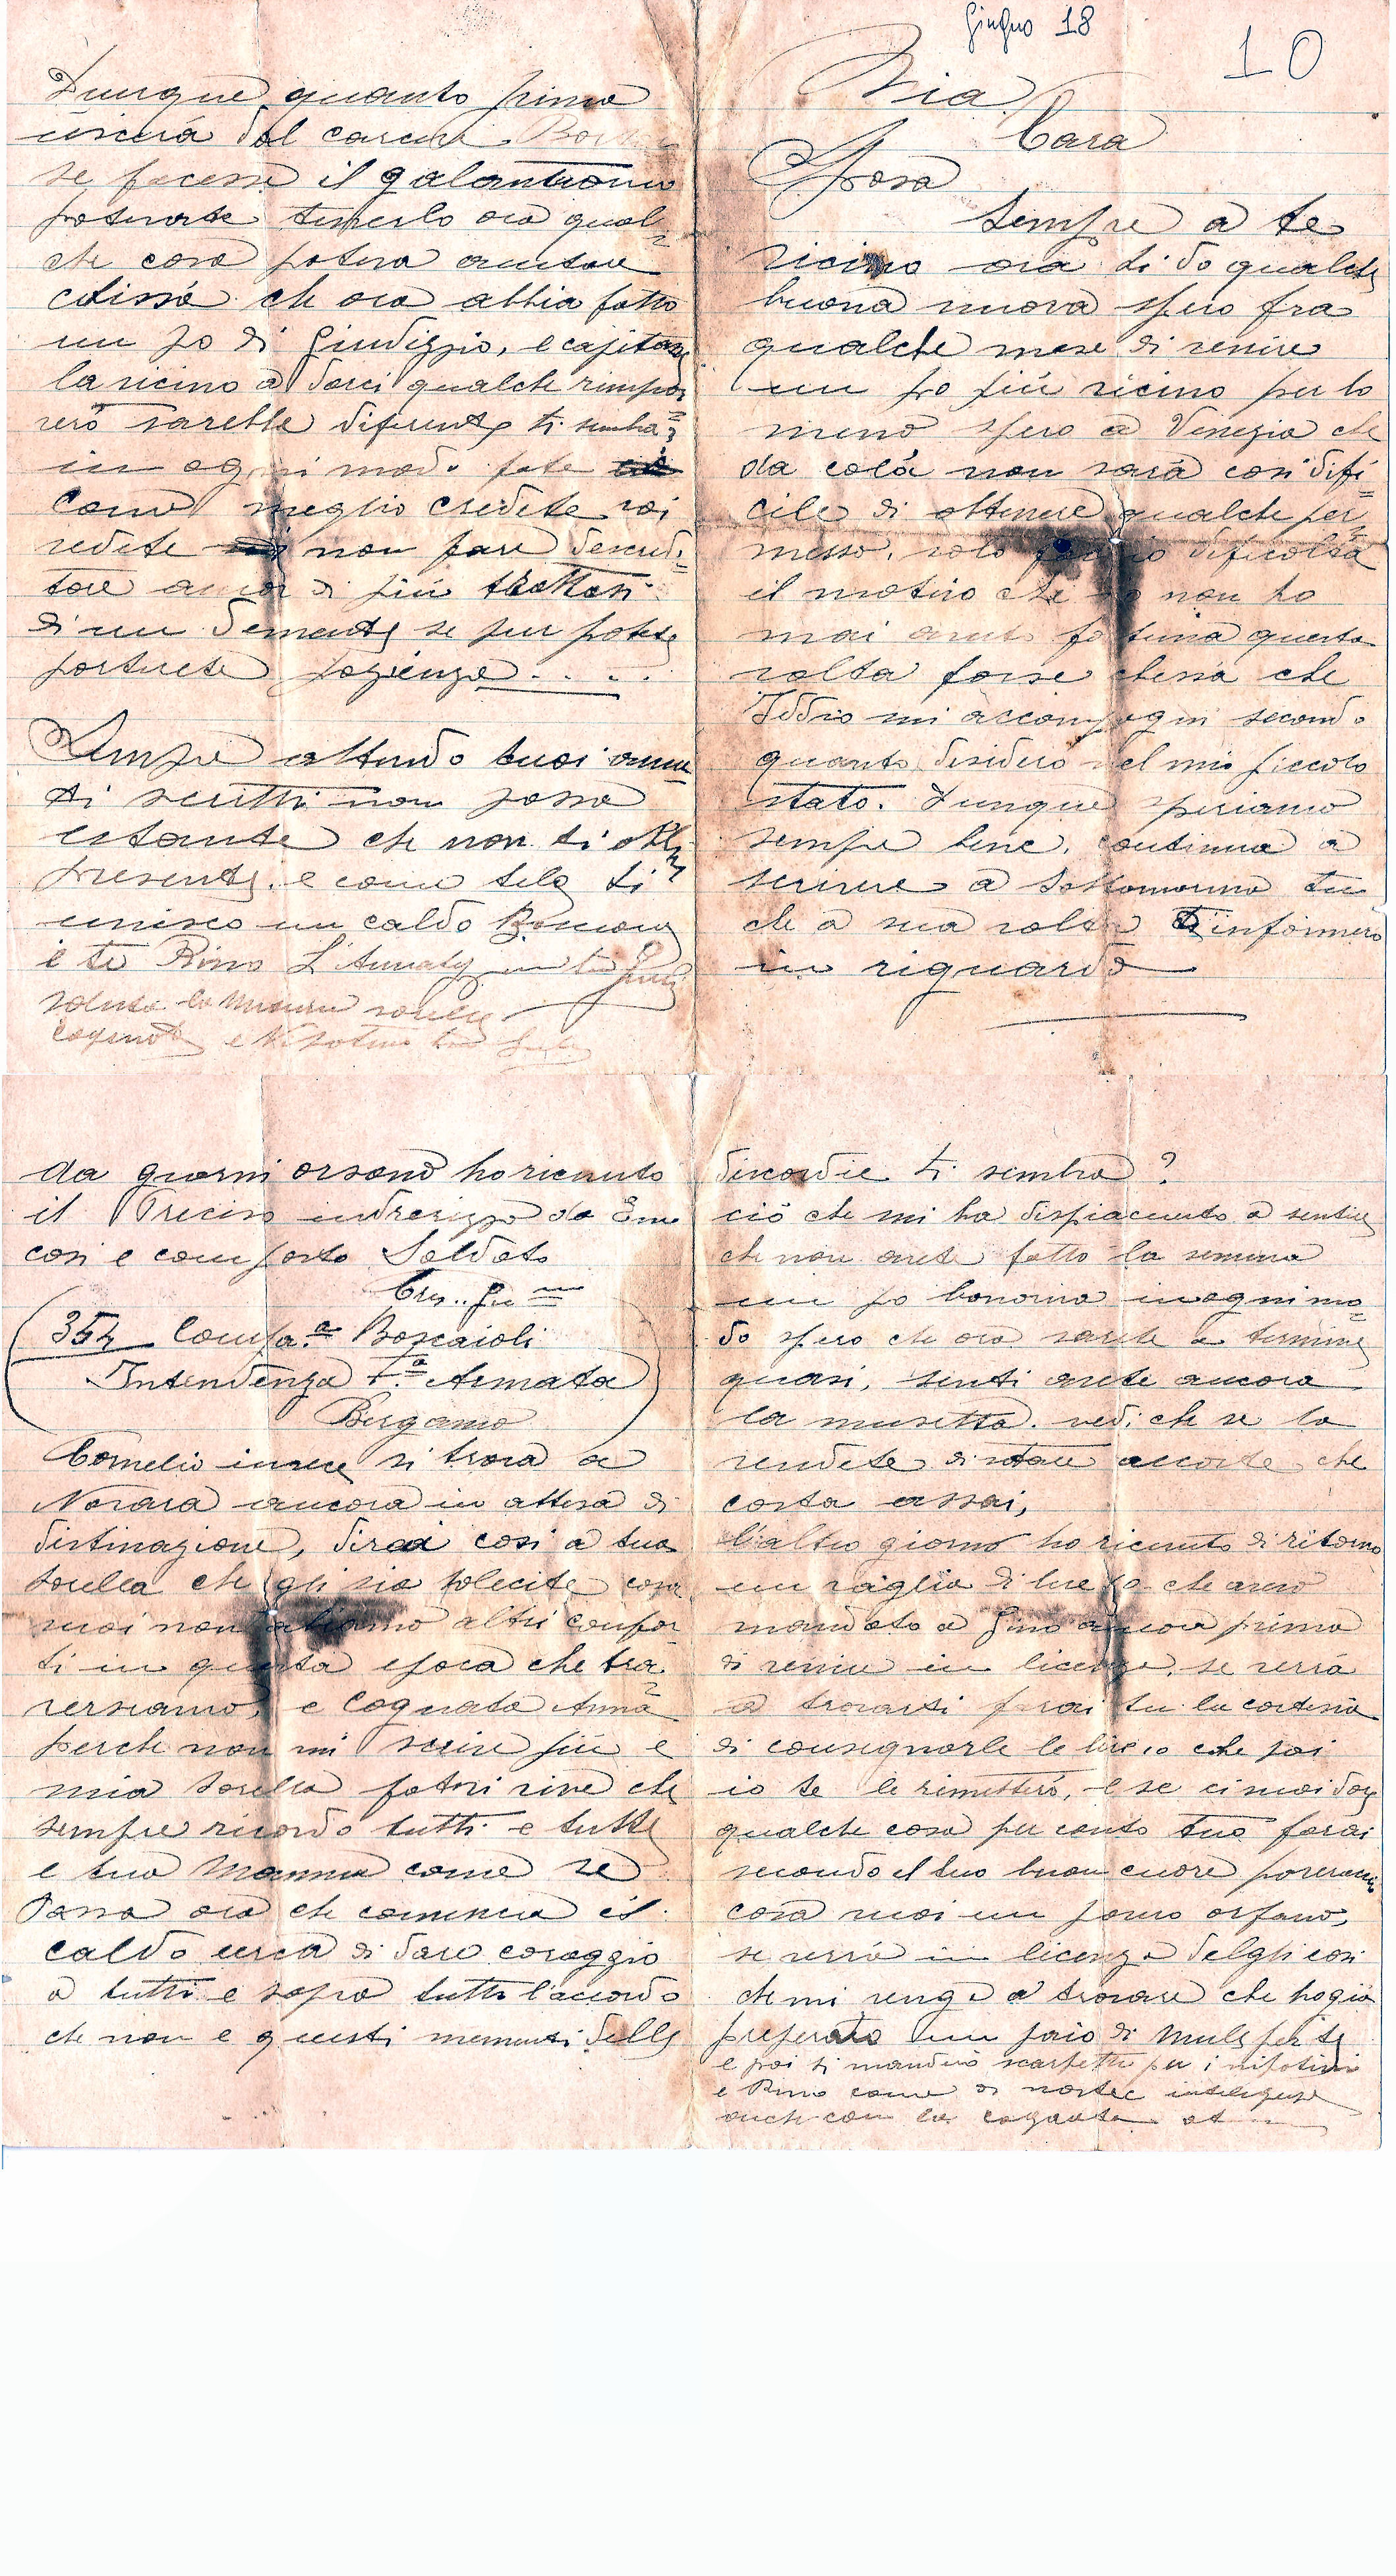 Giugno 18
10
Mia
Cara
Sposa
Sempre a te
vicino ora ti do qualche
buona nuova spero fra
qualche mese di venire
un po più vicino per lo
meno spero a Venezia che
da colà non sarà cosi difi=
cile di ottenere qualche per=
messo, solo dificoltà
il motivo che non ho
mai avuto fortuna questa
volta forse chessà che
Iddio mi accompagni secondo
quanto desidero nel mio piccolo
stato. Dunque speriamo
sempre bene, continua a
scrivere a Sottomarina tu
che a sua volta ti informerò
in riguardo
da giorni orsono ho ricevuto
il Preciso indrerizzo da
cosi e composto Soldato
354 Compa.a Boscaioli
Intendenza 7.a Armata
Bergamo
Cornelio invece si trova a
Novara ancora in attesa di
distinazione, dirai cosi a tua
sorella che gli sia solecite cosa
vuoi non abiamo altri confor
ti in questa epoca che tra=
versiamo, e Cognata Anna
perche non mi scrive più e
mia sorella potsi vive che
sempre ricordo tutti e tutte
e tua Mamma come se
Passa ora che comincia il
caldo cerca di dare coraggio
a tutti e sopra tutto l'accordo
che non e questi momenti delle
discordie ti sembra?
ciò che mi ha dispiacuto a sentire
che non avete fatto la semina
un po bonorina inogni mo=
do spero che ora sarete a termine
quasi, senti avete ancora
la musetta. vedi che se la
vendete di stare accorte che
costa assai,
l'altro giorno ho ricevuto di ritorno
un vaglia di lire 10 che avevo
mandato a Gino ancora prima
di venire in licenza, se verrà
a trovarti farai tu la cortesia
di consegnarle le lire 10 che poi
io te le rimetterò, e se ci vuoi dare
qualche cosa per conto tuo farai
secondo il tuo buon cuore
cosa vuoi un povero orfano,
se verrà in licenza delgli cosi
che mi venga a trovare che ho già
preparato un paio di mule per te
e poi ti manderò scarpette per i nipotini
e Rino come di nostre intelligenze
anche con la cognata
Dunque quanto prima
uscirà dal carcere
se facesse il galantuomo
potevate tenerlo ora qual=
che cosa poteva aiutare
chissà che ora abbia fatto
un po di Giudizzio, e capitare
la vicino a darci qualche rimpro=
vero sarebbe diferente ti sembra?
in ogni modo fate
come meglio credete voi
vedete non fare descredi=
tare ancor di più trattasi
di un Demente se pur potete
portarete pazienza....
Sempre attendo tuoi ama
ti scritti non posso
istante che non ti abbi
presente, e come tale ti
unisco un caldo Bacione
e te Rino
saluta la Mamma sorelle
cognate e Nipotini